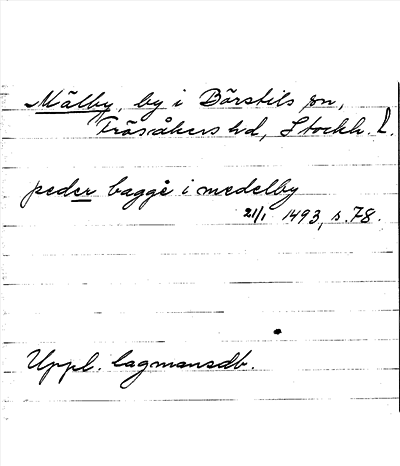 Mälby, by i Börstils sn,
Frösåkers hd, Stockh. L.
peder bagge i medelby
21/1 1493, s. 78.
Uppl. lagmansdb.